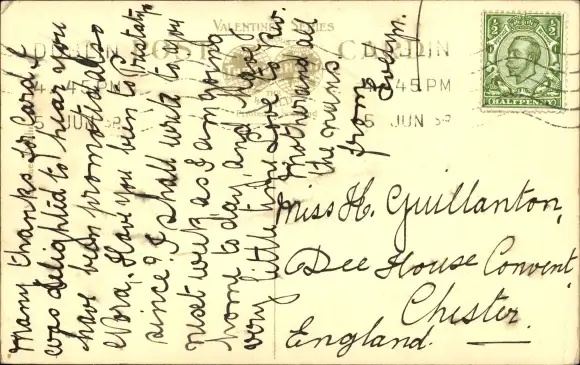 Many thanks for Card I
was delighted to hear you
have been promoted also
Nora. Have you been to
since? I shall write to you
next week as I am going
home to day, and have
very little time. Love to Rev.
Mother and all
the nuns
from Evelyn.
VALENTINE'S SERIES
POST CARD
4.45 PM
5 JUN
4.45 PM
5 JUN
½ ½
HALFPENNY
Miss H. Guillanton,
Dee House Convent,
Chester.
England.